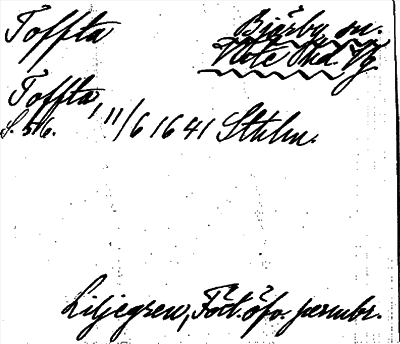 Toffta Bjärby sn.
Viste hd. Vg
Toffta, 11/6 1641 Sthlm.
S. 56.
Liljegren, Fört. öfv. permbr.